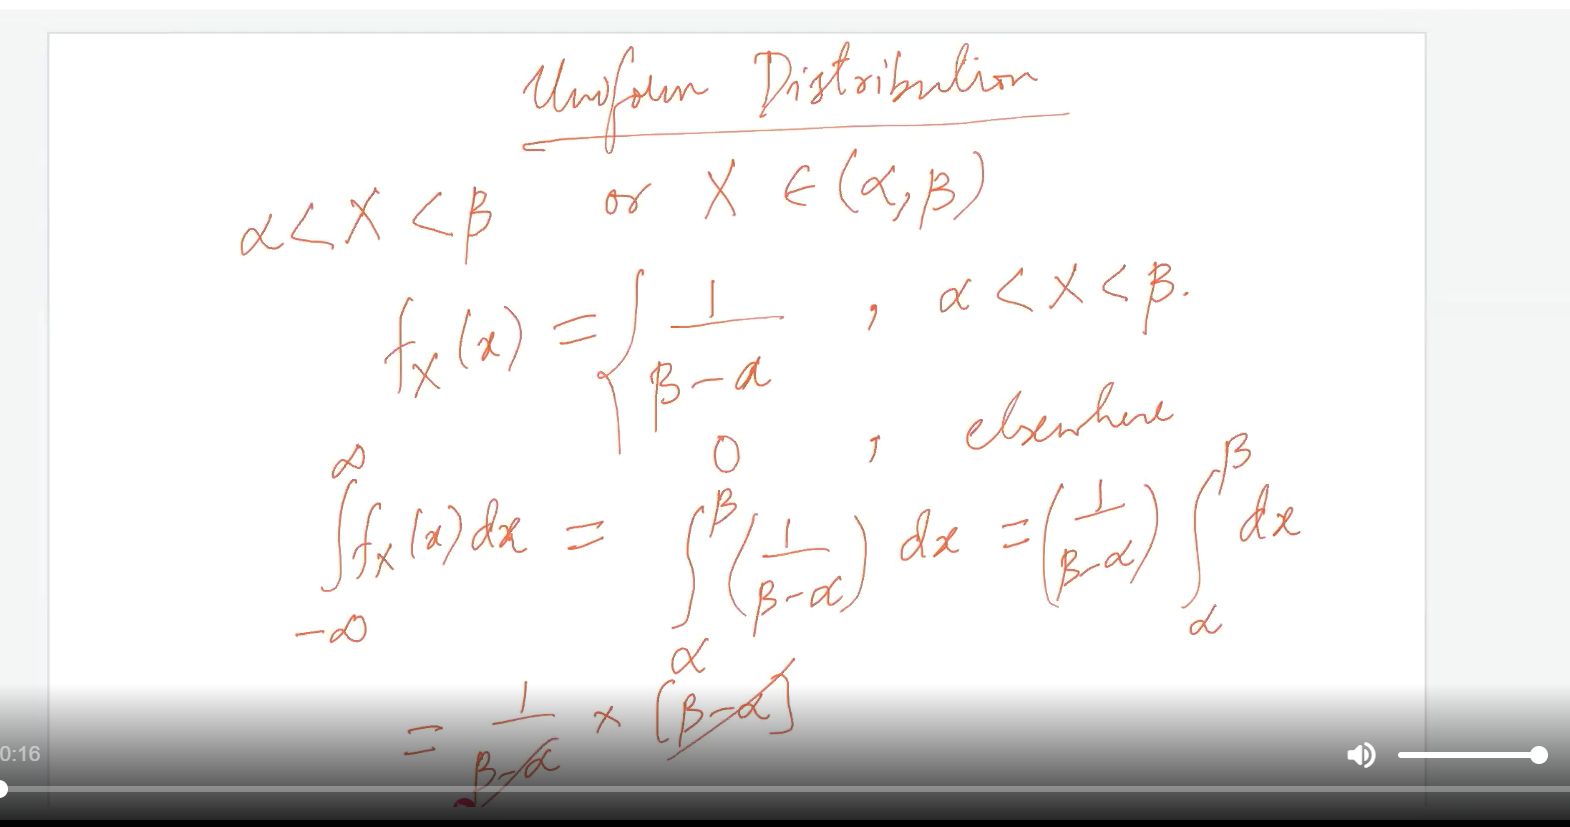 Uniform Distribution
α < X < β or X ∈ (α, β)
f_X (x) = { 1/(β-α) , α < X < β.
0 , elsewhere
∫_{-∞}^{∞} f_X (x) dx = ∫_α^β (1/(β-α)) dx = (1/(β-α)) ∫_α^β dx
= 1/(β-α) × [β-α]
0:16